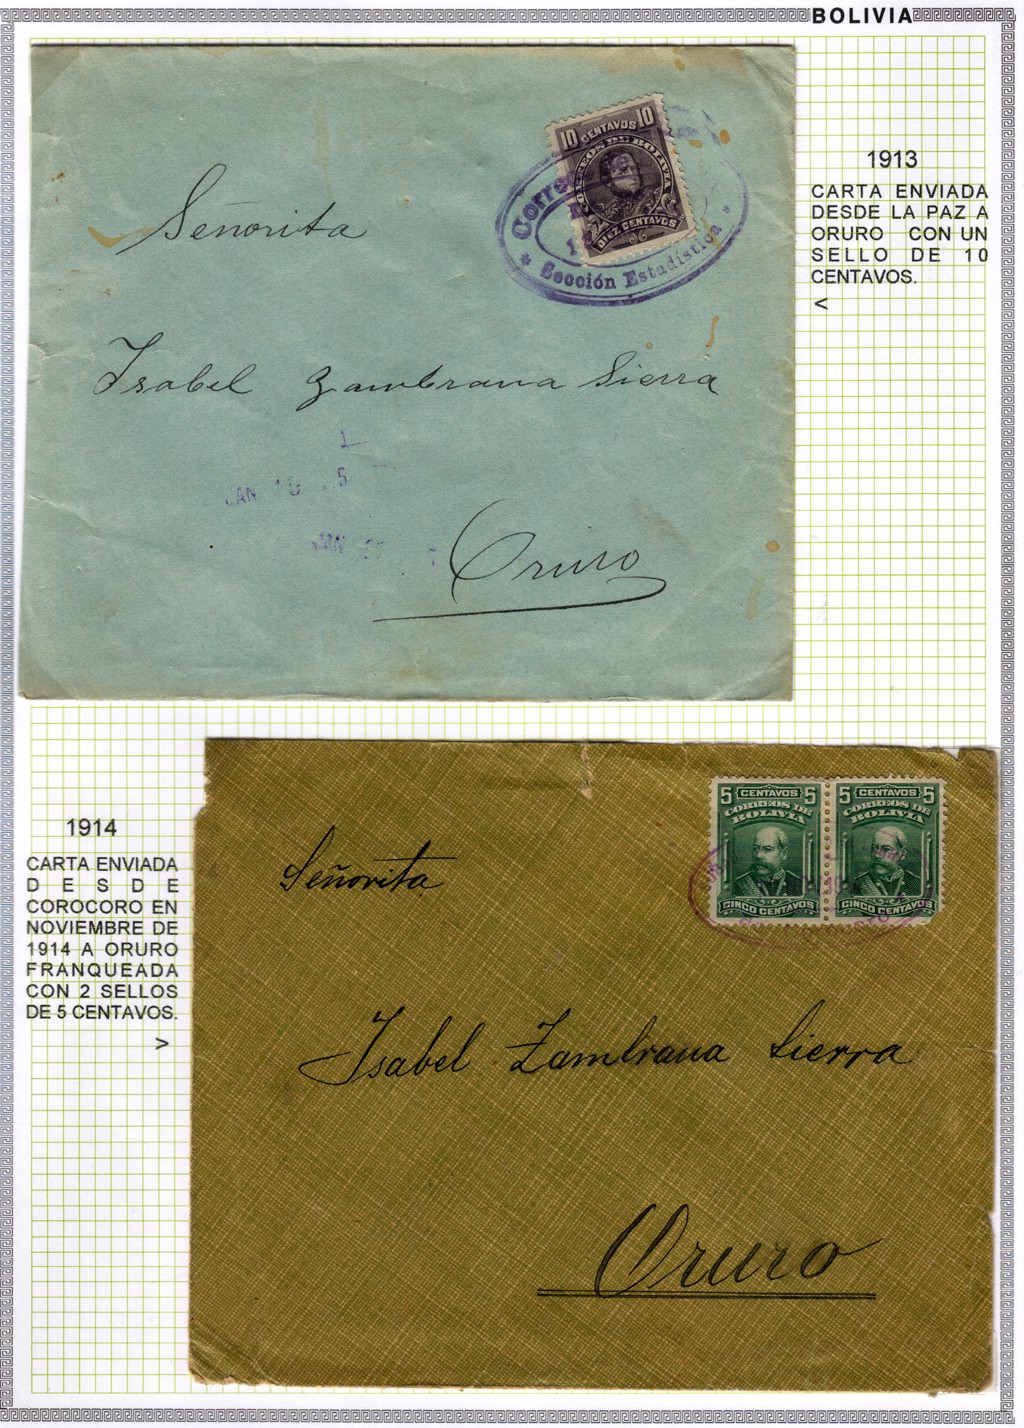 BOLIVIA
1913
CARTA ENVIADA
DESDE LA PAZ A
ORURO CON UN
SELLO DE 10
CENTAVOS.
<
10 CENTAVOS 10
CORREOS DE BOLIVIA
DIEZ CENTAVOS
Corre
* Sección Estadística *
Señorita
Isabel Zambrana Sierra
JAN 5
JAN
Oruro
1914
CARTA ENVIADA
DESDE
COROCORO EN
NOVIEMBRE DE
1914 A ORURO
FRANQUEADA
CON 2 SELLOS
DE 5 CENTAVOS.
>
5 CENTAVOS 5
CORREOS DE
BOLIVIA
CINCO CENTAVOS
5 CENTAVOS 5
CORREOS DE
BOLIVIA
CINCO CENTAVOS
Señorita
Isabel Zambrana Sierra
Oruro